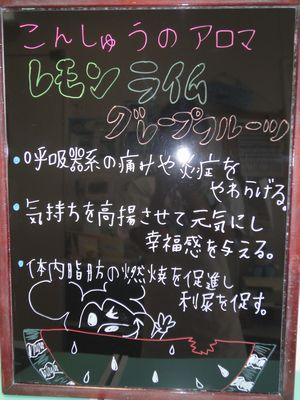 こんしゅうのアロマ
レモン ライム
グレープフルーツ
・呼吸器系の痛みや炎症を
やわらげる。
・気持ちを高揚させて元気にし
幸福感を与える。
・体内脂肪の燃焼を促進し
利尿を促す。